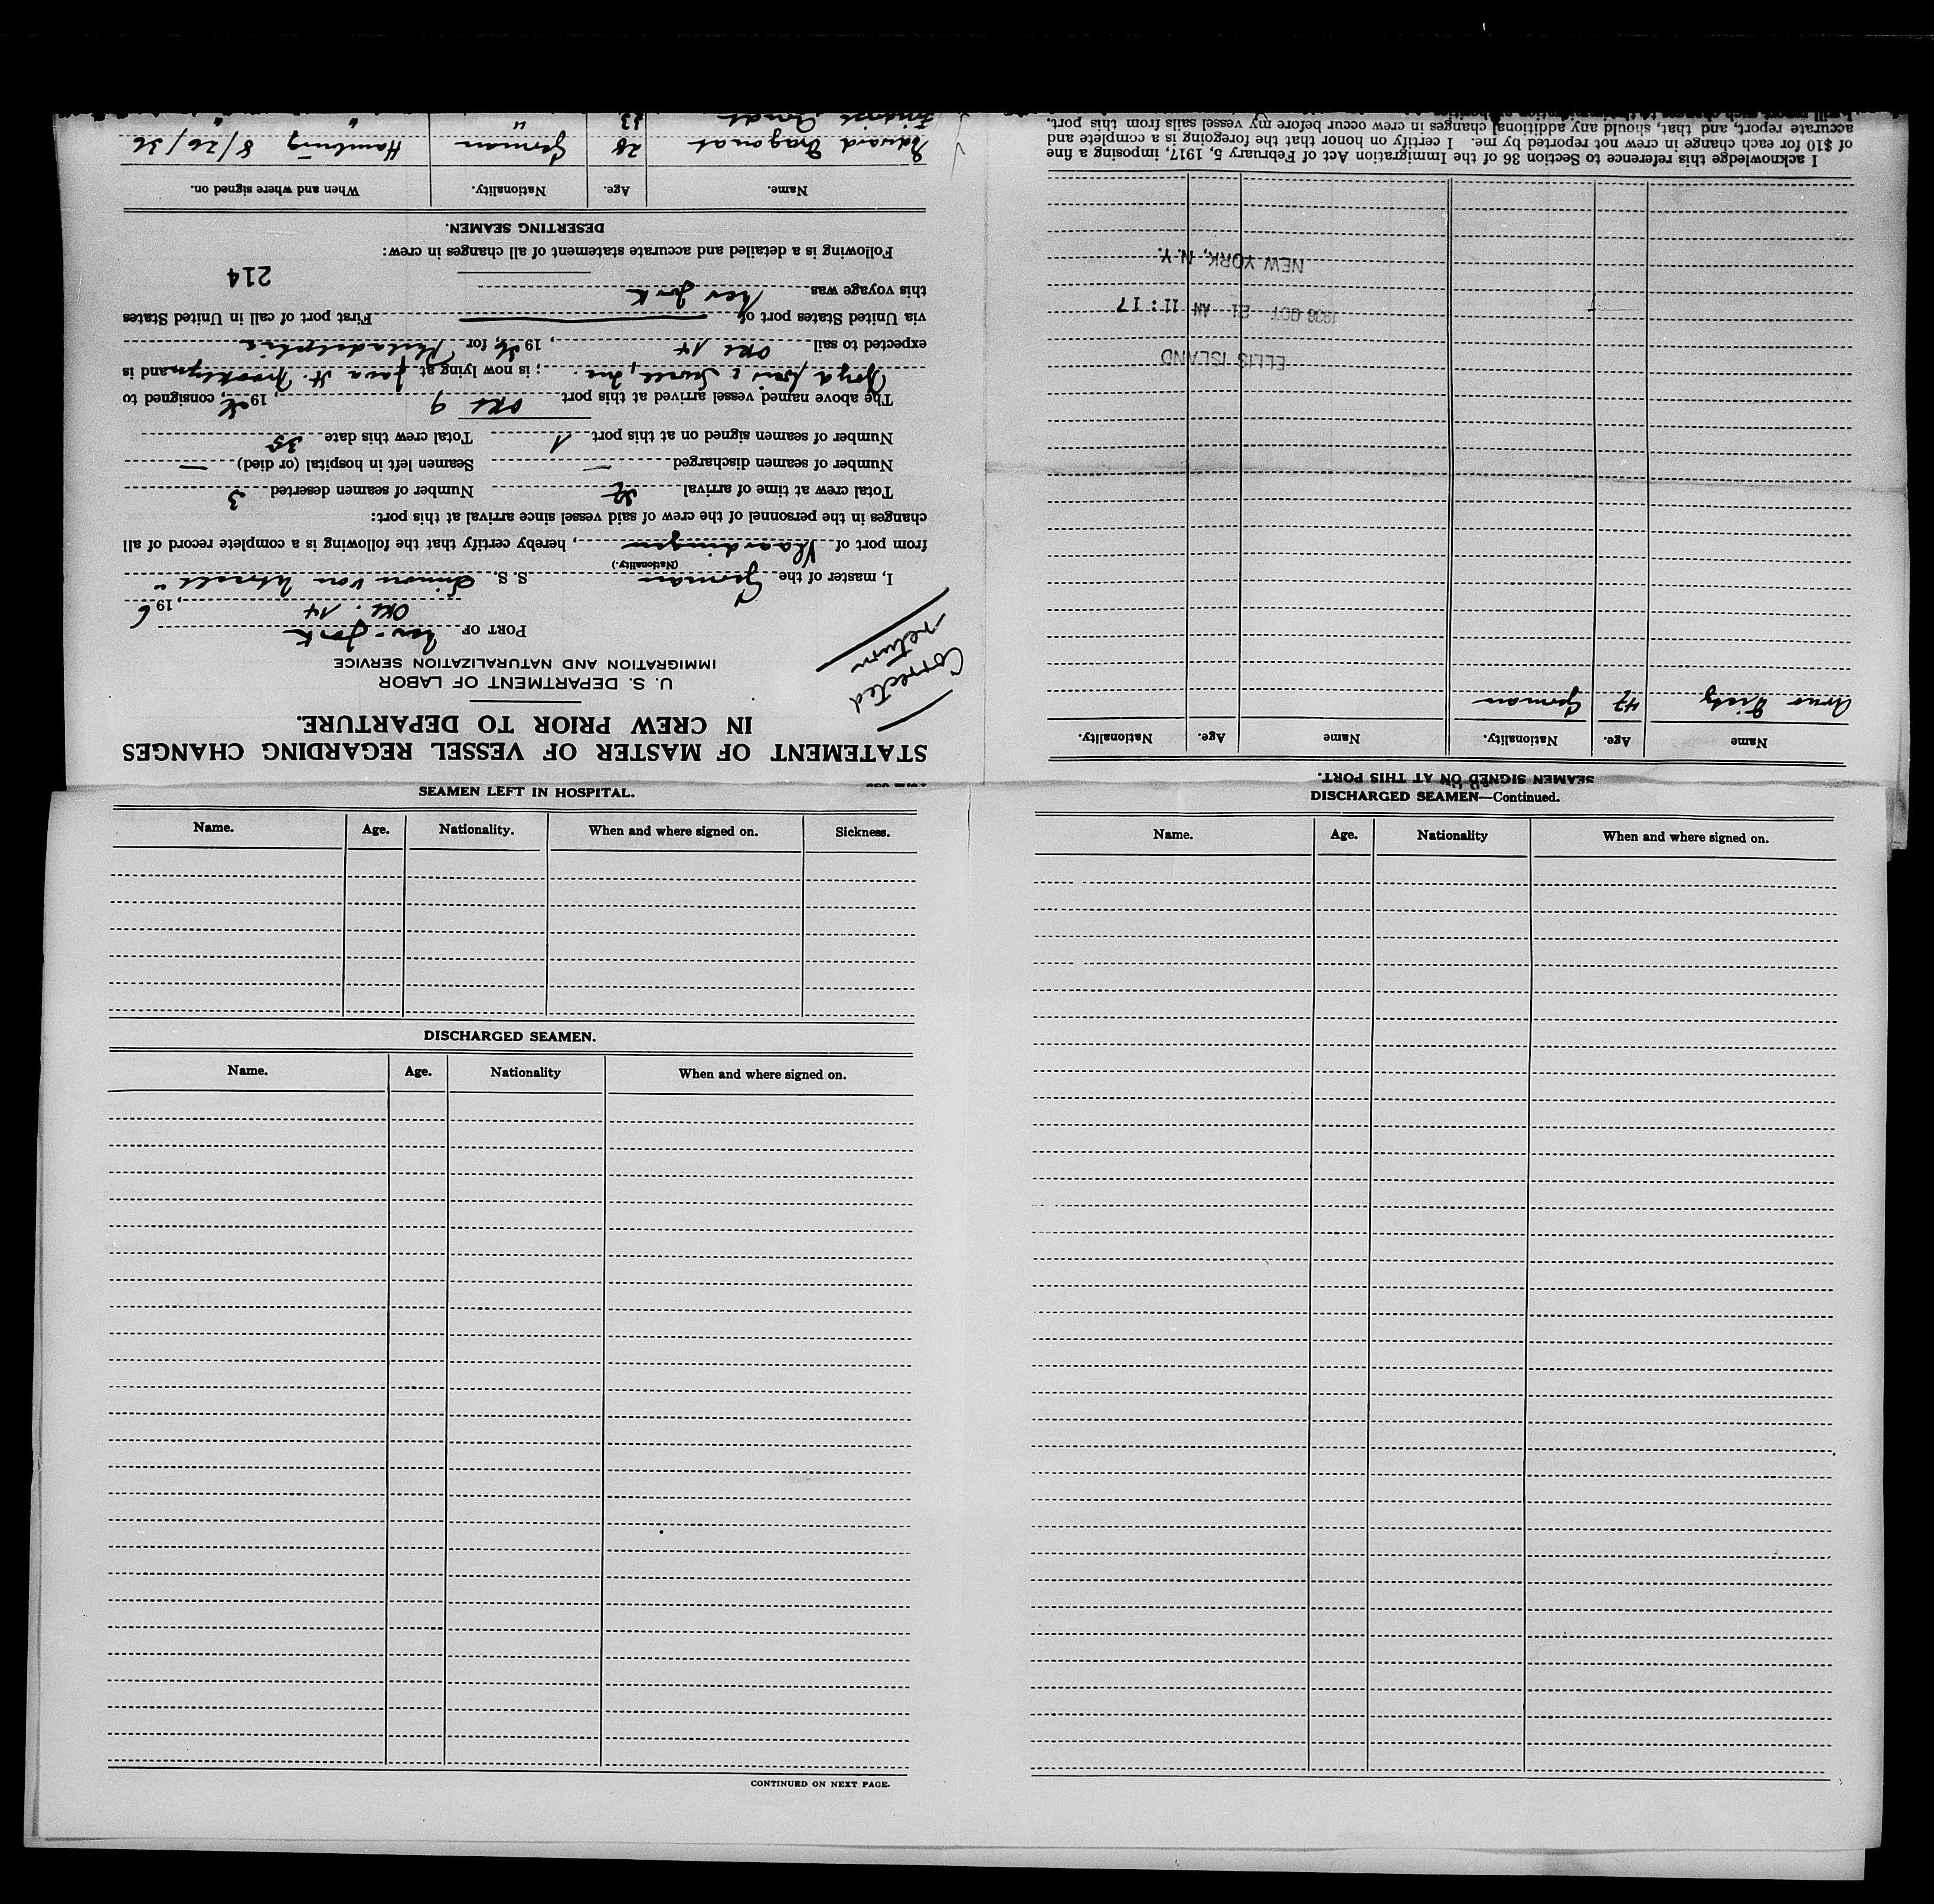 STATEMENT OF MASTER OF VESSEL REGARDING CHANGES
IN CREW PRIOR TO DEPARTURE.
U. S. DEPARTMENT OF LABOR
IMMIGRATION AND NATURALIZATION SERVICE
Corrected
return
PORT OF New-York
Okt. 14, 1936
I, master of the German S. S. Simon von Utrecht
(Nationality.)
from port of Vlaardingen, hereby certify that the following is a complete record of all
changes in the personnel of the crew of said vessel since arrival at this port:
Total crew at time of arrival 37 Number of seamen deserted 3
Number of seamen discharged — Seamen left in hospital (or died) —
Number of seamen signed on at this port 1 Total crew this date 35
The above named vessel arrived at this port Okt 9, 1936, consigned to
Boyd, & , Inc.; is now lying at Java St. Brooklyn and is
expected to sail Okt 14, 1936, for Philadelphia
via United States port of First port of call in United States
this voyage was New York
214
Following is a detailed and accurate statement of all changes in crew:
DESERTING SEAMEN.
Name. Age. Nationality. When and where signed on.
Eduard Dragonat 28 German Hamburg 8/26/36
Arndt 23 " " "
SEAMEN SIGNED ON AT THIS PORT.
Name Age. Nationality. Name Age. Nationality.
Arno Dietz 47 German
ELLIS ISLAND
1936 OCT 21 AM 11:17
NEW YORK, N.Y.
I acknowledge this reference to Section 36 of the Immigration Act of February 5, 1917, imposing a fine
of $10 for each change in crew not reported by me. I certify on honor that the foregoing is a complete and
accurate report, and that, should any additional changes in crew occur before my vessel sails from this port,
I will report such changes to the immigration authorities
SEAMEN LEFT IN HOSPITAL.
Name. Age. Nationality. When and where signed on. Sickness.
DISCHARGED SEAMEN.
Name. Age. Nationality When and where signed on.
CONTINUED ON NEXT PAGE.
DISCHARGED SEAMEN—Continued.
Name. Age. Nationality When and where signed on.